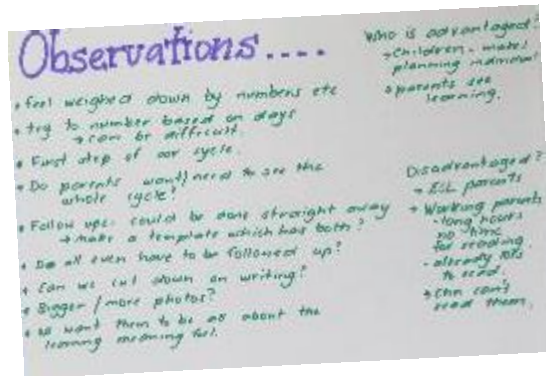 Observations....
• Feel weighed down by numbers etc
• try to number based on days
→ can be difficult.
• First step of our cycle.
• Do parents want/need to see the
whole cycle?
• Follow ups: could be done straight away
→ make a template which has both?
• Do all even have to be followed up?
• Can we cut down on writing?
• Bigger / more photos?
• We want them to be all about the
learning meaningful.
Who is advantaged?
→ Children - makes
planning individual
→ parents see
learning.
Disadvantaged?
→ ESL parents
→ Working parents
- long hours
no time
for reading.
- already lots
to read.
→ Chn can't
read them.